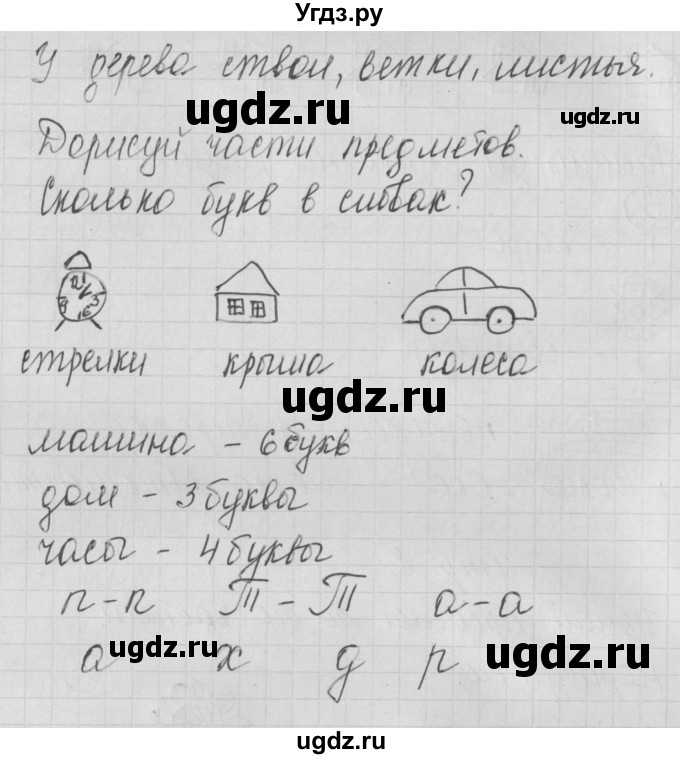 Угдз.ру
У дерева ствол, ветки, листья.
ugdz.ru
Дорисуй части предметов.
ugdz.ru
Сколько букв в словах?
12 1
9 3
6
стрелки крыша колеса
ugdz.ru
машина - 6 букв
дом - 3 буквы
часы - 4 буквы
п-п Т-Т а-а
ugdz.ru
а х д р
ugdz.ru
ugdz.ru